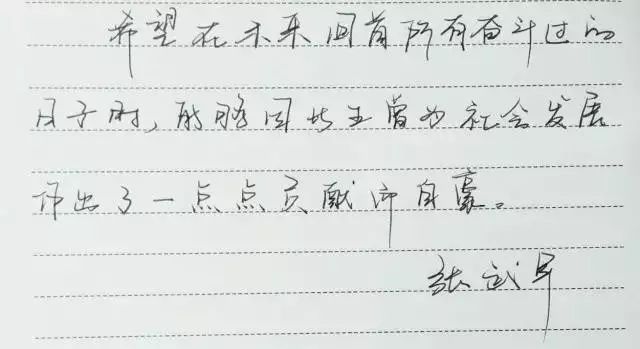 希望在未来回首所有奋斗过的
日子时，能够因此生曾为社会发展
作出了一点点贡献而自豪。
张武军